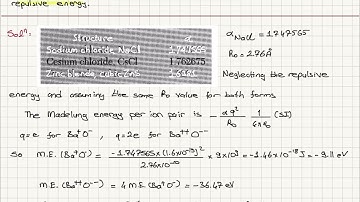 repulsive energy.
Solⁿ:
Structure α
Sodium chloride, NaCl 1.747565
Cesium chloride, CsCl 1.762675
Zinc blende, cubic ZnS 1.6381
α NaCl = 1.747565
R₀ = 2.76Å
Neglecting the repulsive
energy and assuming the same R₀ value for both forms
The Madelung energy per ion pair is - αq²/R₀ 1/4πε₀ (SI)
q=e for Ba⁺O⁻, q=2e for Ba⁺⁺O⁻⁻
So M.E. (Ba⁺O⁻) = -1.747565×(1.6×10⁻¹⁹)²/2.76×10⁻¹⁰ × 9×10⁹ = -1.46×10⁻¹⁸J = -9.11 eV
M.E. (Ba⁺⁺O⁻⁻) = 4 M.E. (Ba⁺O⁻) = -36.47 eV